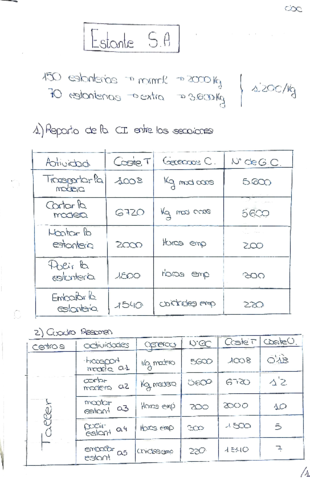 Estante S.A
150 estanterias → → 2000 Kg
70 estanterias → → 3600 Kg
1'200/Kg
1) Reparto de la CI entre las secciones
Actividad Coste T Generadores C. Nº de G.C.
Transportar la madera 1008 Kg mad cons 5600
Cortar la madera 6720 Kg mad cons 5600
Montar la estanteria 2000 Horas emp 200
Pulir la estanteria 1500 Horas emp 300
Embalar la estanteria 1540 unidades emp 220
2) Cuadro Resumen
centros actividades generad Nº GC Coste T Coste U.
Taller
transport madera a1 Kg madera 5600 1008 0'18
cortar madera a2 Kg madera 5600 6720 1'2
montar estant a3 Horas emp 200 2000 10
pulir estant a4 Horas emp 300 1500 5
embalar estant a5 220 1540 7